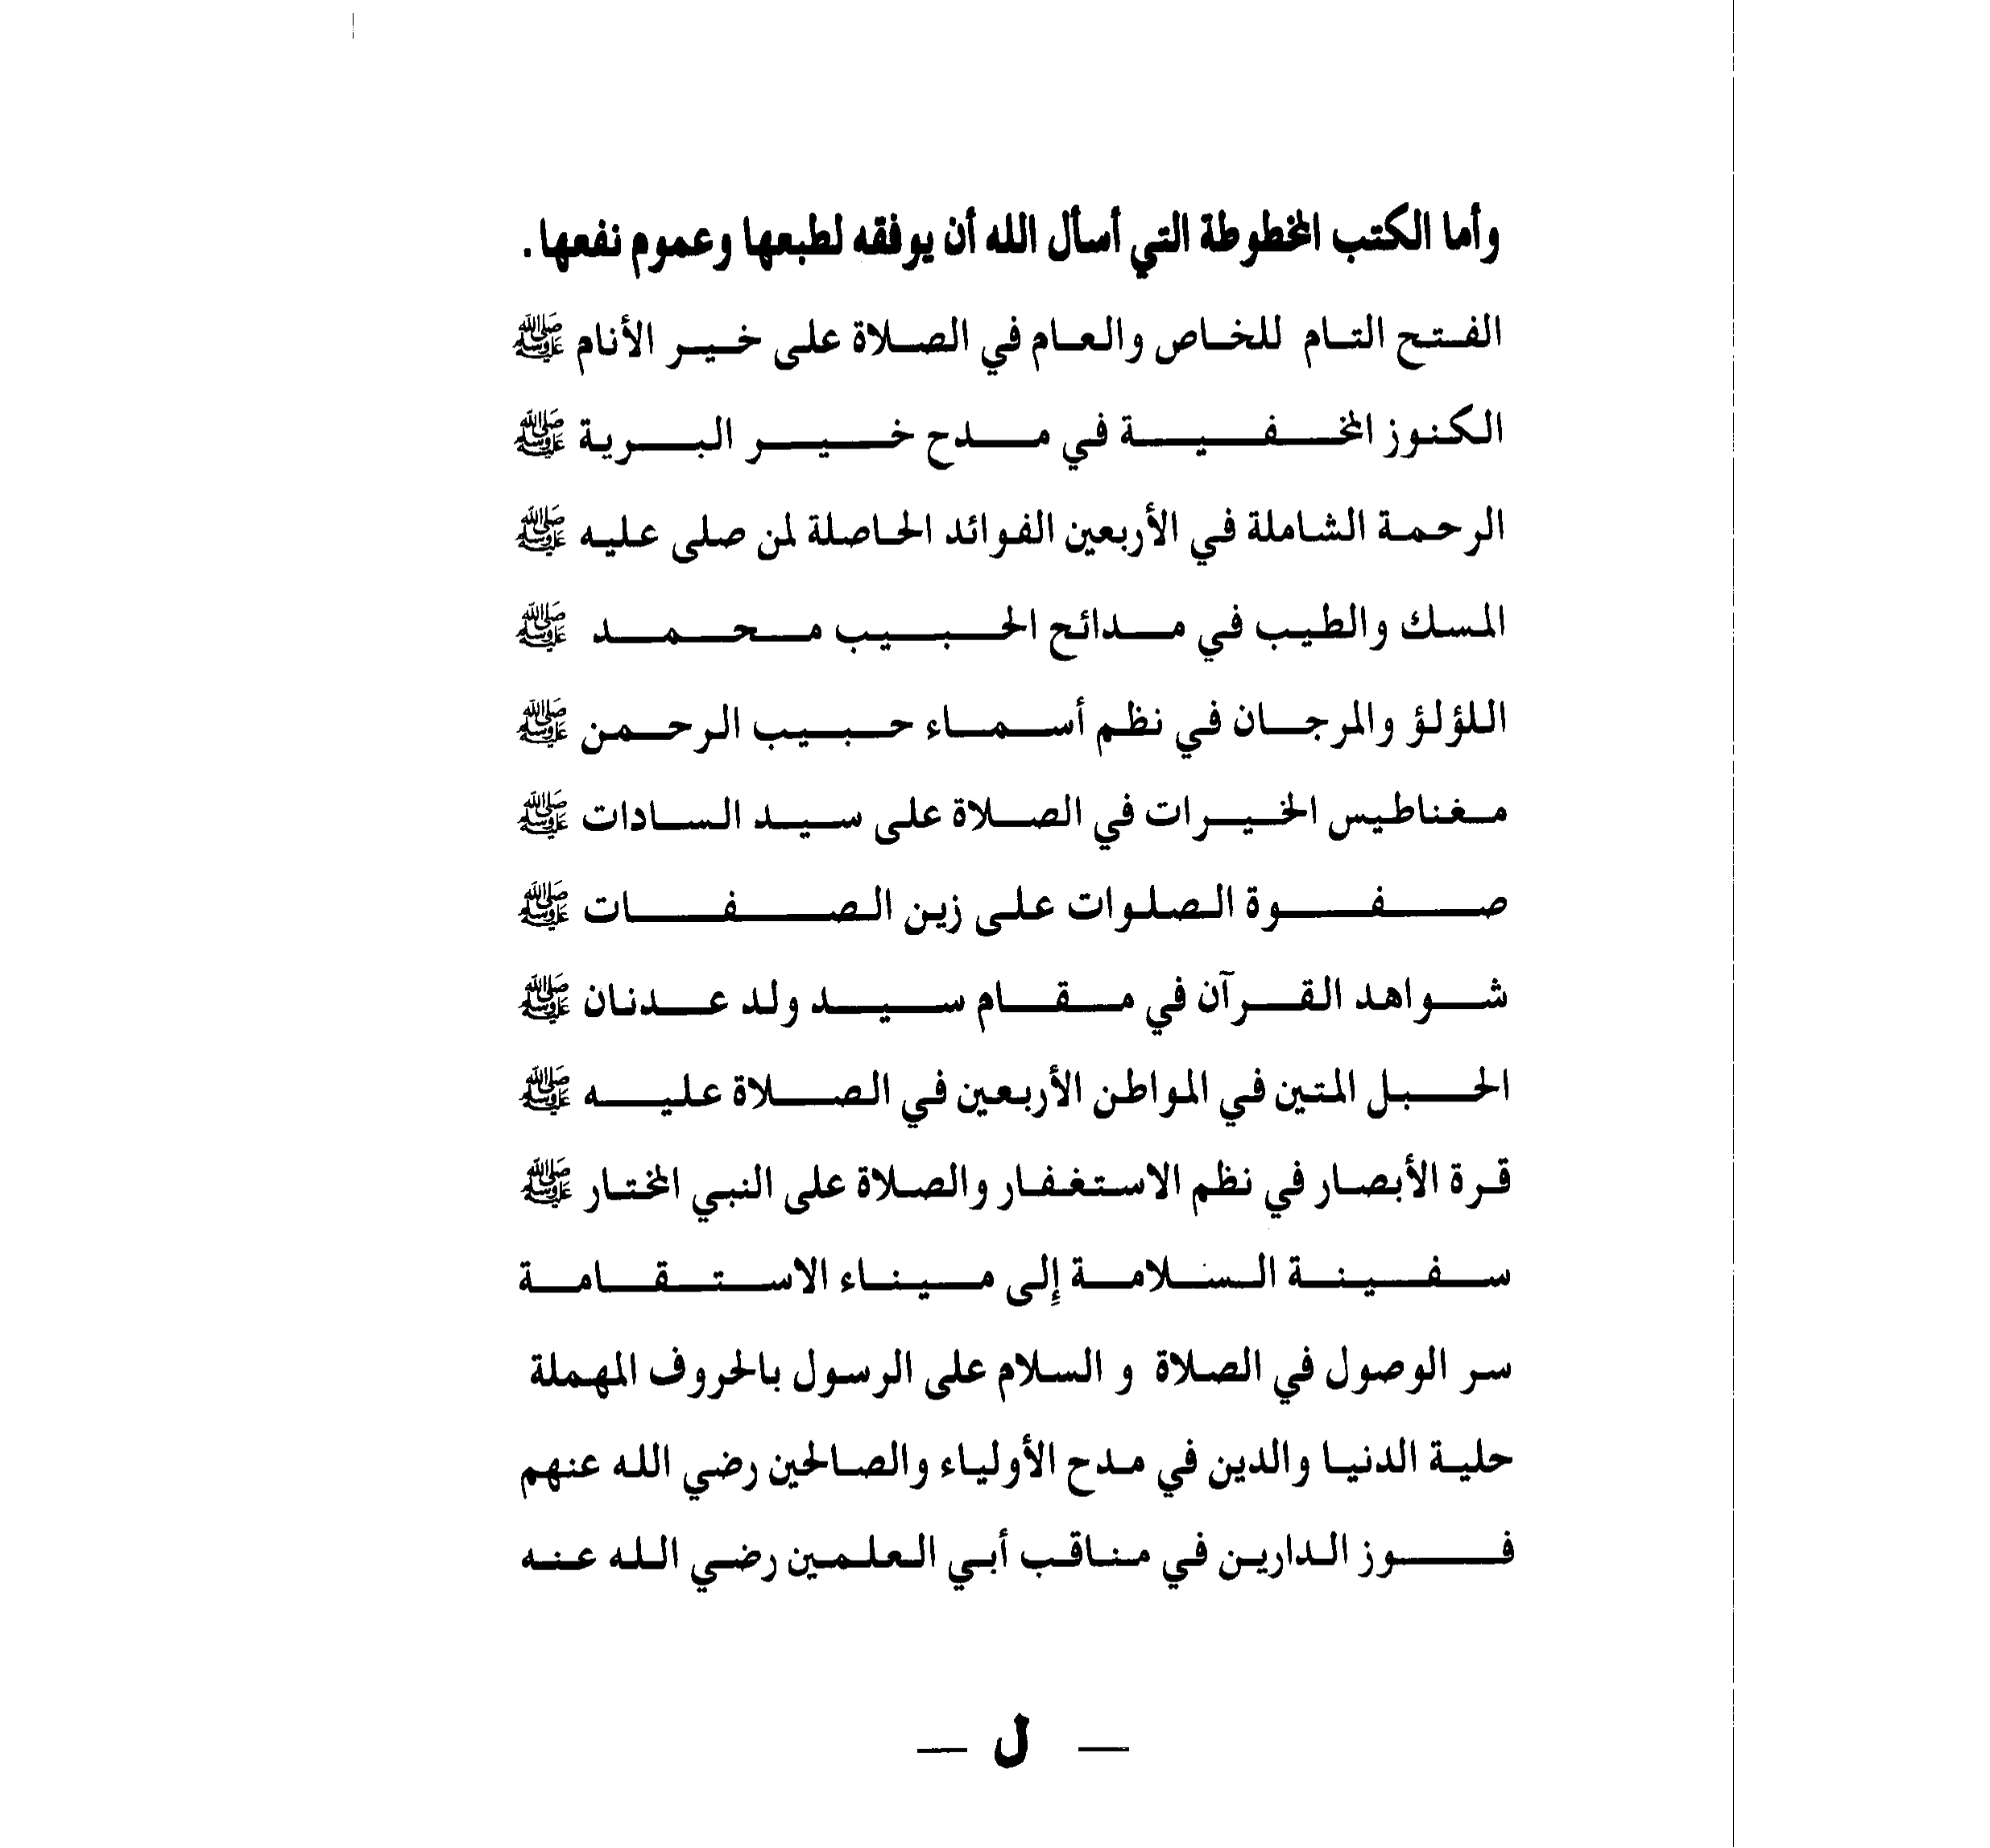 وأما الكتب المخطوطة التي أسأل الله أن يوفقه لطبعها وعموم نفعها .
الفتح التام للخاص والعام في الصلاة على خير الأنام ﷺ
الكنوز المخفية في مدح خير البرية ﷺ
الرحمة الشاملة في الأربعين الفوائد الحاصلة لمن صلى عليه ﷺ
المسك والطيب في مدائح الحبيب محمد ﷺ
اللؤلؤ والمرجان في نظم أسماء حبيب الرحمن ﷺ
مغناطيس الخيرات في الصلاة على سيد السادات ﷺ
صفوة الصلوات على زين الصفات ﷺ
شواهد القرآن في مقام سيد ولد عدنان ﷺ
الحبل المتين في المواطن الأربعين في الصلاة عليه ﷺ
قرة الأبصار في نظم الاستغفار والصلاة على النبي المختار ﷺ
سفينة السلامة إلى ميناء الاستقامة
سر الوصول في الصلاة و السلام على الرسول بالحروف المهملة
حلية الدنيا والدين في مدح الأولياء والصالحين رضي الله عنهم
فوز الدارين في مناقب أبي العلمين رضي الله عنه
— ل —